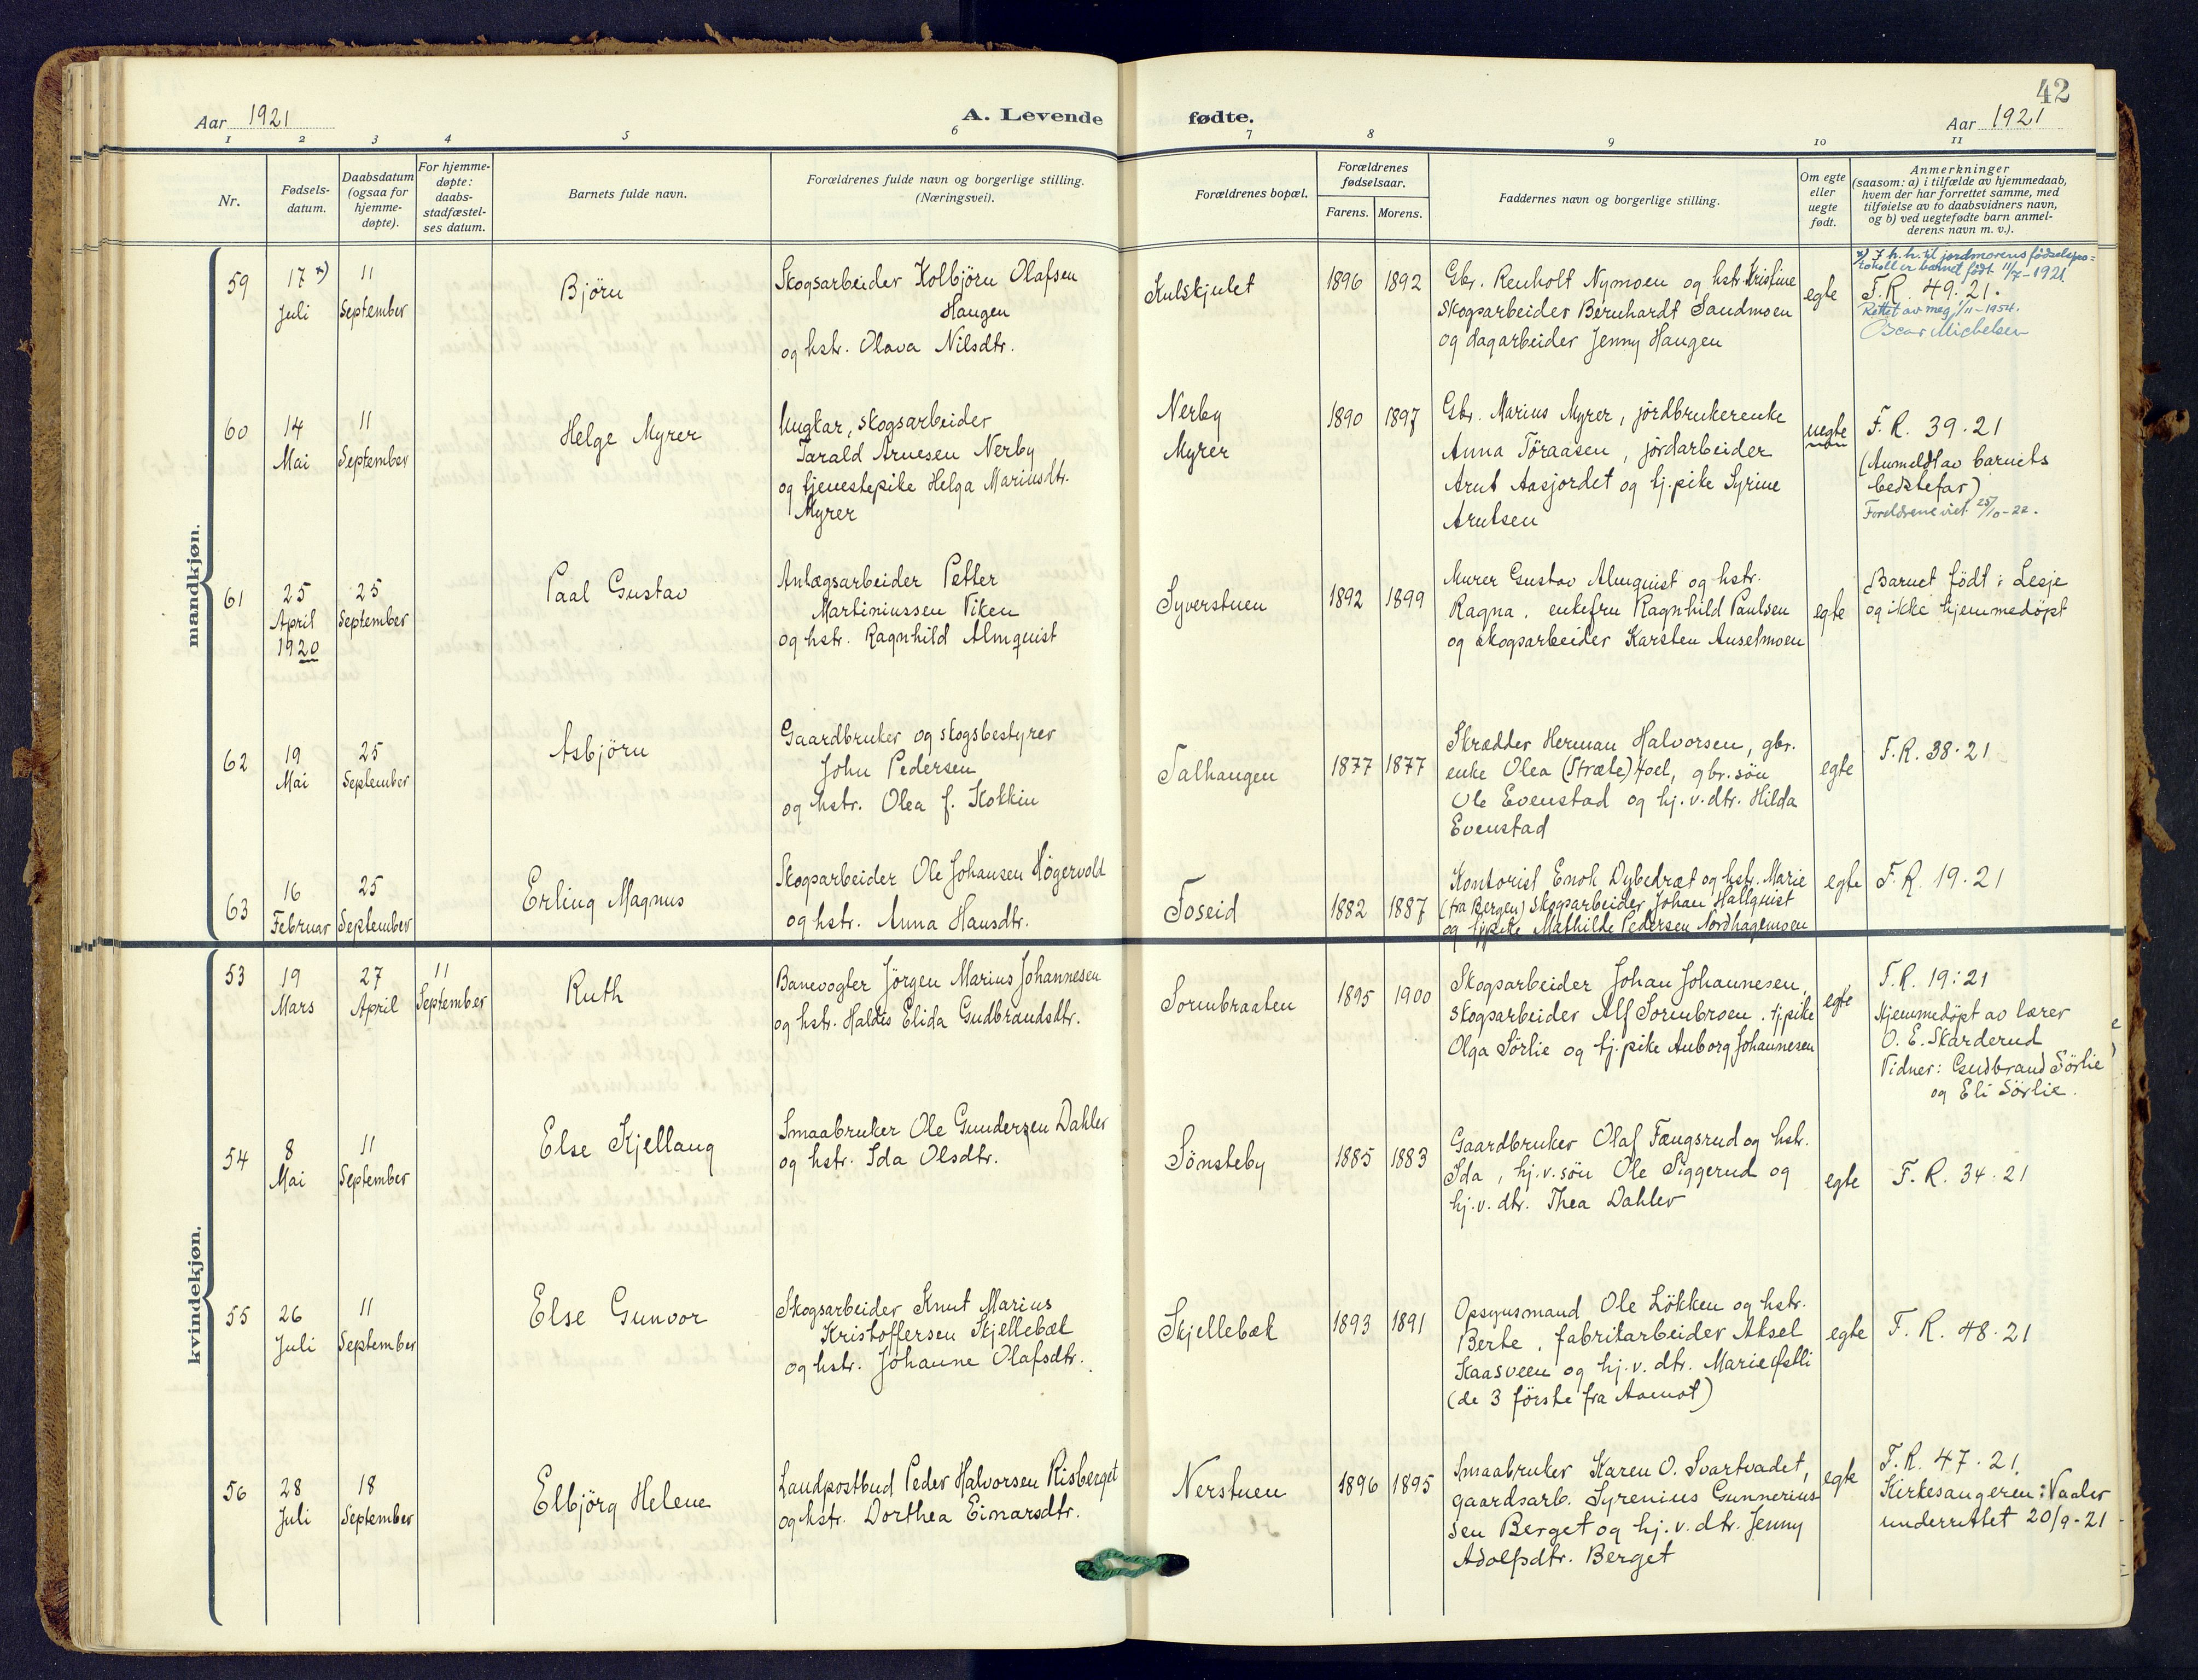 42
Aar 1921
A. Levende
fødte.
Aar 1921
1 2 3 4 5 6 7 8 9 10 11
Nr.
Fødsels-
datum.
Daabsdatum
(ogsaa for
hjemme-
døpte).
For hjemme-
døpte:
daabs-
stadfæstel-
ses datum.
Barnets fulde navn.
Forældrenes fulde navn og borgerlige stilling.
(Næringsvei).
Forældrenes bopæl.
Forældrenes
fødselsaar.
Farens. Morens.
Faddernes navn og borgerlige stilling.
Om egte
eller
uegte
født.
Anmerkninger
(saasom: a) i tilfælde av hjemmedaab,
hvem der har forrettet samme, med
tilføielse av to daabsvidners navn,
og b) ved uegtefødte barn anmel-
derens navn m. v.).
mandkjøn.
59
17 x)
Juli
11
September
Björn
Skogsarbeider Kolbjörn Olafsen
Haugen
og hstr. Olava Nilsdtr.
Kulskjulet
1896
1892
Gbr. Renholt Nymoen og hstr. Kristine
Skogsarbeider Bernhardt Sandmoen
og dagarbeider Jenny Haugen
egte
x) I h. h. til jordmorens födselspro=
tokoll er barnet födt 11/7-1921.
F.R. 49.21.
Rettet av meg, 1/11-1954.
Oscar Michelsen
60
14
Mai
11
September
Helge Myrer
Ungkar, skogsarbeider
Tarald Arnesen Nerby
og tjenestepike Helga Mariusdtr.
Myrer
Nerby
Myrer
1890
1897
Gbr. Marius Myrer, jordbrukerenke
Anna Töraasen, jordarbeider
Arnt Aasjordet og tj.pike Syrine
Arntsen
uegte
F.R. 39.21
(Anmeldt av barnets
bedstefar)
Foreldrene viet 25/10-22.
61
25
April
1920
25
September
Paal Gustav
Anlægsarbeider Petter
Martiniussen Viken
og hstr. Ragnhild Almquist
Syverstuen
1892
1899
Murer Gustav Almquist og hstr.
Ragna, enkefru Ragnhild Paulsen
og skogsarbeider Karsten Anselmoen
egte
Barnet födt i Lesje
og ikke hjemmedöpt
62
19
Mai
25
September
Asbjörn
Gaardbruker og skogsbestyrer
John Pedersen
og hstr. Olea f. Kokkin
Talhaugen
1877
1877
Skrædder Herman Halvorsen, gbr.
enke Olea (Stræte) Hoel, gbr. sön
Ole Evenstad og hj.v.dtr. Hilda
Evenstad
egte
F.R. 38.21
63
16
Februar
25
September
Erling Magnus
Skogsarbeider Ole Johansen Högervold
og hstr. Anna Hansdtr.
Foseid
1882
1887
Kontorist Enok Dybedræt og hstr. Marie
(fra Bergen) skogsarbeider Johan Hallquist
og tj.pike Mathilde Pedersen Nordhagemoen
egte
F.R. 19.21
kvindekjøn.
53
19
Mars
27
April
11
September
Ruth
Banevogter Jörgen Marius Johannesen
og hstr. Haldis Elida Gudbrandsdtr.
Sormbraaten
1895
1900
Skogsarbeider Johan Johannesen,
skogsarbeider Alf Sormbroen, tj.pike
Olga Sörlie og tj.pike Anborg Johannesen
egte
F.R. 19:21
Hjemmedöpt av lærer
O. E. Skarderud
Vidner: Gudbrand Sörlie
og Eli Sörlie.
54
8
Mai
11
September
Else Kjellaug
Smaabruker Ole Gundersen Dahler
og hstr. Ida Olsdtr.
Sönsteby
1885
1883
Gaardbruker Olaf Fængsrud og hstr.
Ida, hj.v.sön Ole Siggerud og
hj.v.dtr. Thea Dahler
egte
F.R. 34.21
55
26
Juli
11
September
Else Gunvor
Skogsarbeider Knut Marius
Kristoffersen Skjellebæk
og hstr. Johanne Olafsdtr.
Skjellebæk
1893
1891
Opsynsmand Ole Lökken og hstr.
Berte, fabrikarbeider Aksel
Kaasveen og hj.v.dtr. Marie Østli
(de 3 förste fra Aamot)
egte
F.R. 48.21
56
28
Juli
18
September
Elbjörg Helene
Landpostbud Peder Halvorsen Risberget
og hstr. Dorthea Einarsdtr.
Nerstuen
1896
1895
Smaabruker Karen O. Svartvadet,
gaardsarb. Syrenius Gunnerius-
sen Berget og hj.v.dtr. Jenny
Adolfsdtr. Berget
egte
F.R. 47.21.
Kirkesangeren i Vaaler
underrettet 20/9-21